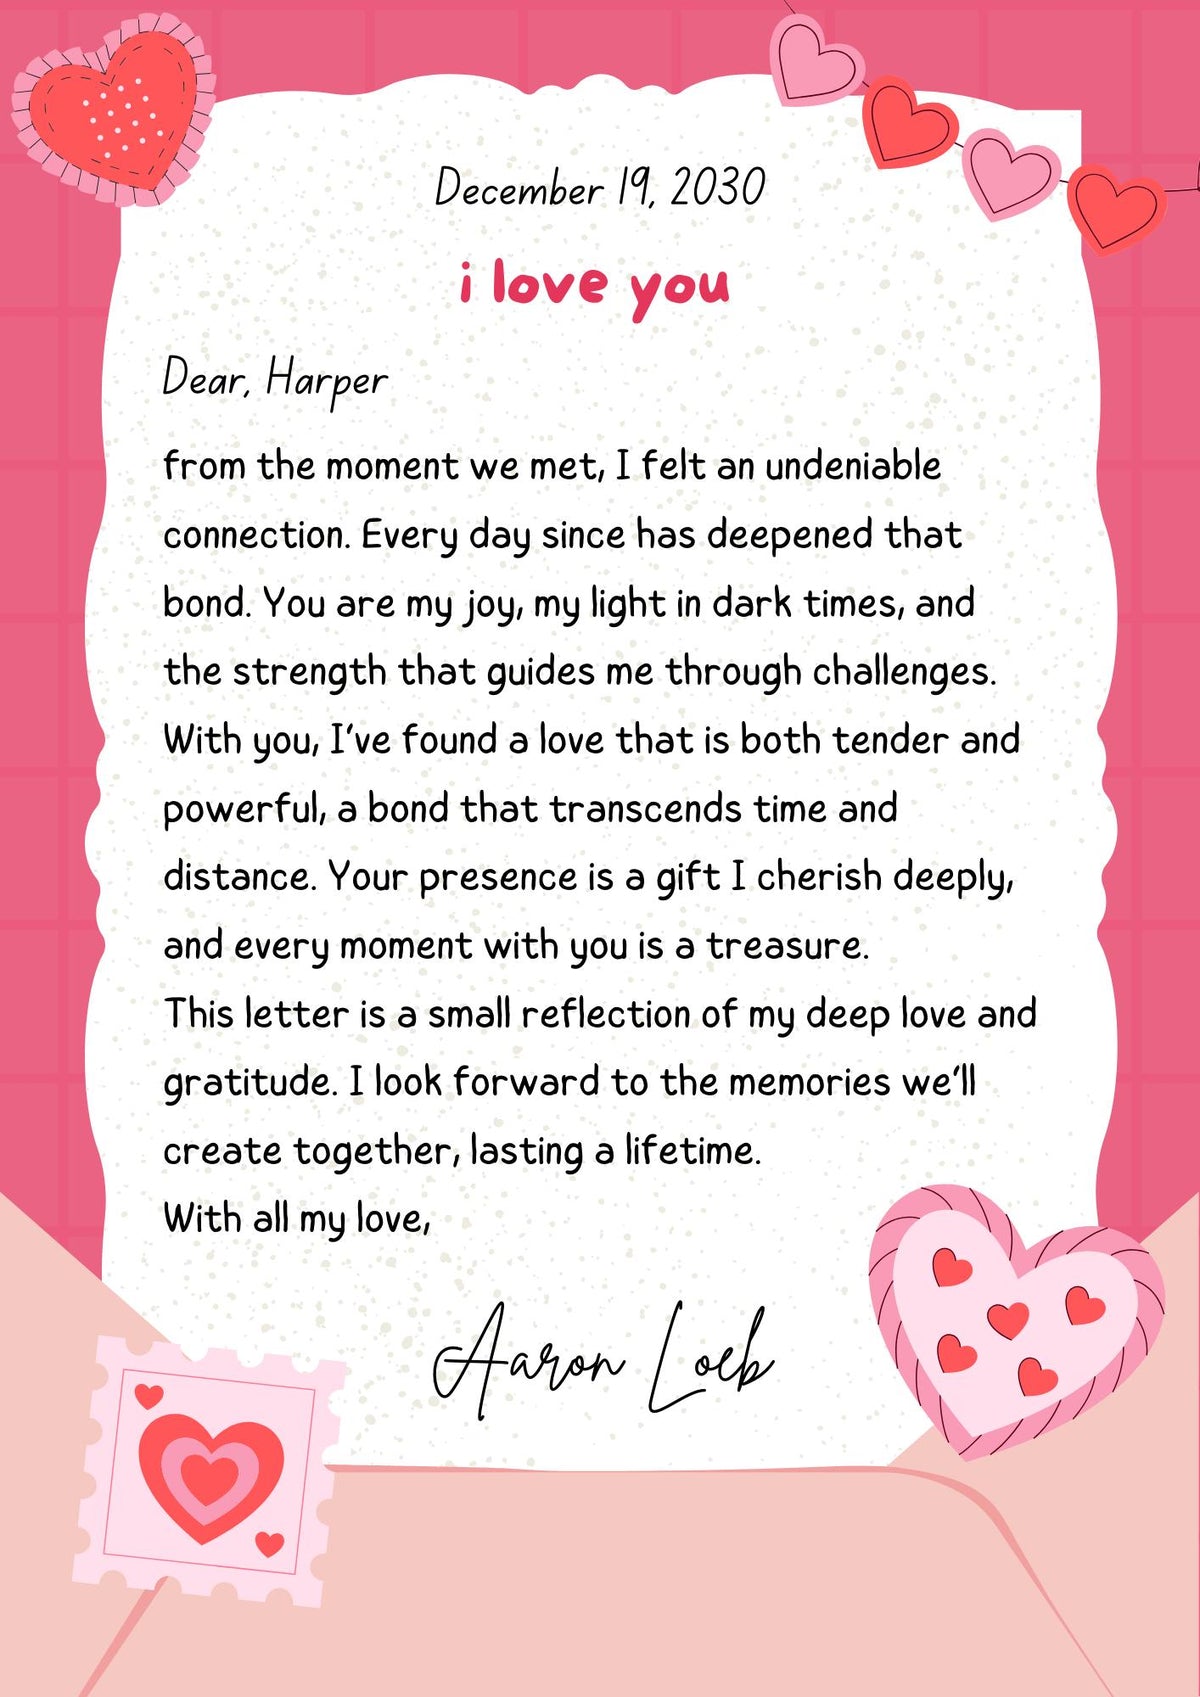 December 19, 2030
i love you
Dear, Harper
from the moment we met, I felt an undeniable
connection. Every day since has deepened that
bond. You are my joy, my light in dark times, and
the strength that guides me through challenges.
With you, I've found a love that is both tender and
powerful, a bond that transcends time and
distance. Your presence is a gift I cherish deeply,
and every moment with you is a treasure.
This letter is a small reflection of my deep love and
gratitude. I look forward to the memories we'll
create together, lasting a lifetime.
With all my love,
Aaron Loeb